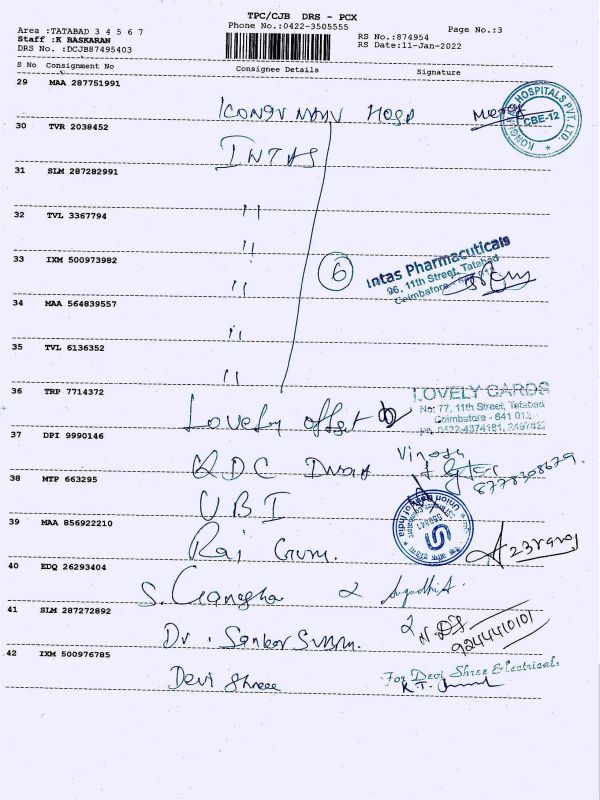 TPC/CJB DRS - PCX
Phone No.:0422-3505555
Page No.:3
Area :TATABAD 3 4 5 6 7
Staff :K BASKARAN
DRS No. :DCJB87495403
RS No.:874954
RS Date:11-Jan-2022
S No Consignment No Consignee Details Signature
29 MAA 287751991
HOSPITALS PVT. LTD.
CBE-12
30 TVR 2038452
INTAS
31 SLM 287282991
"
32 TVL 3367794
"
33 IXM 500973982
"
6
Intas Pharmacuticals
96, 11th Street, Tatabad
Coimbatore
34 MAA 564839557
"
35 TVL 6136352
"
36 TRP 7714372
Lovely offset
LOVELY CARDS
No: 77, 11th Street, Tatabad
Coimbatore - 641 012
37 DPI 9990146
KDC
8778308679
38 MTP 663295
UBI
Union Bank of India
39 MAA 856922210
Raj
40 EDQ 26293404
S. Ganesha
41 SLM 287272892
Dr. Sankar
9244410101
42 IXM 500976785
Devi Shree
For Devi Shree Electricals